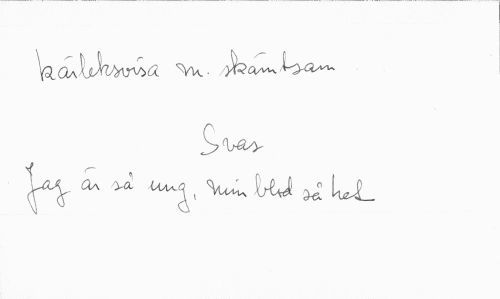 kärleksvisa m. skämtsam
Svar
Jag är så ung, min blod så het